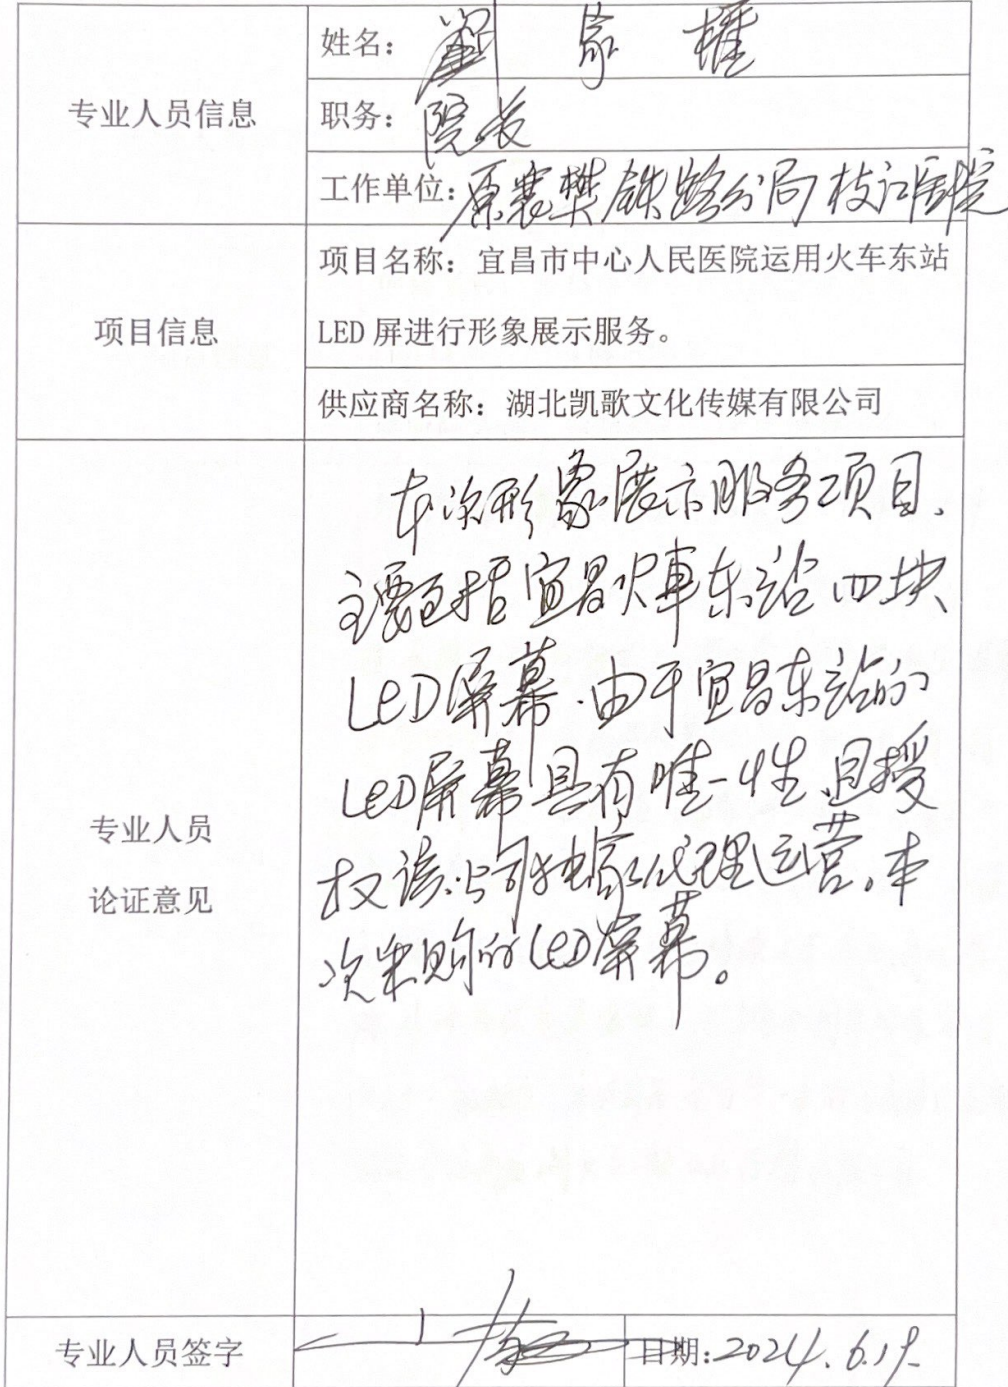 姓名：劉家權
专业人员信息
职务：院长
工作单位：原襄樊铁路分局枝江医院
项目信息
项目名称：宜昌市中心人民医院运用火车东站
LED 屏进行形象展示服务。
供应商名称：湖北凯歌文化传媒有限公司
专业人员
论证意见
本次形象展示服务项目、
主要包括宜昌火車东站四块
LED屏幕.由于宜昌东站的
LED屏幕具有唯一性,且授
权该公司独家代理运营。本
次采购的LED屏幕。
专业人员签字
日期：2024.6.19.